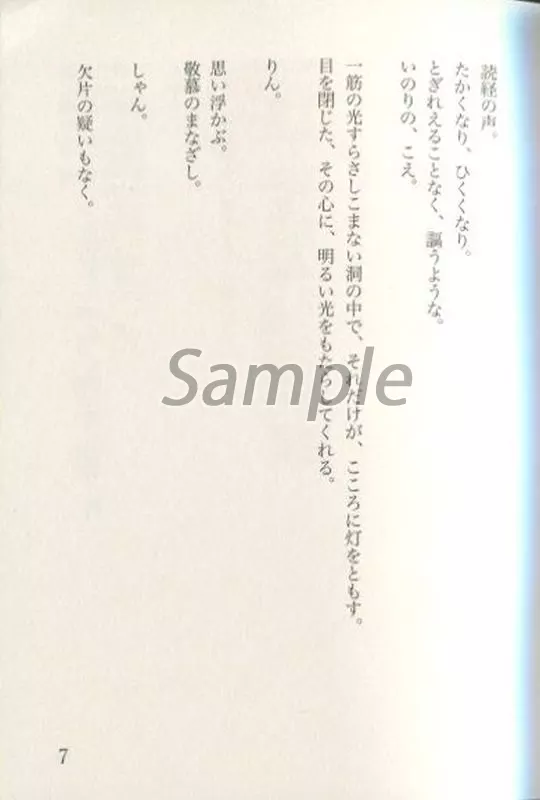 読経の声。
たかくなり、ひくくなり。
とぎれえることなく、謳うような。
いのりの、こえ。
一筋の光すらさしこまない洞の中で、それだけが、こころに灯をともす。
目を閉じた、その心に、明るい光をもたらしてくれる。
りん。
思い浮かぶ。
敬慕のまなざし。
しゃん。
欠片の疑いもなく。
7
Sample